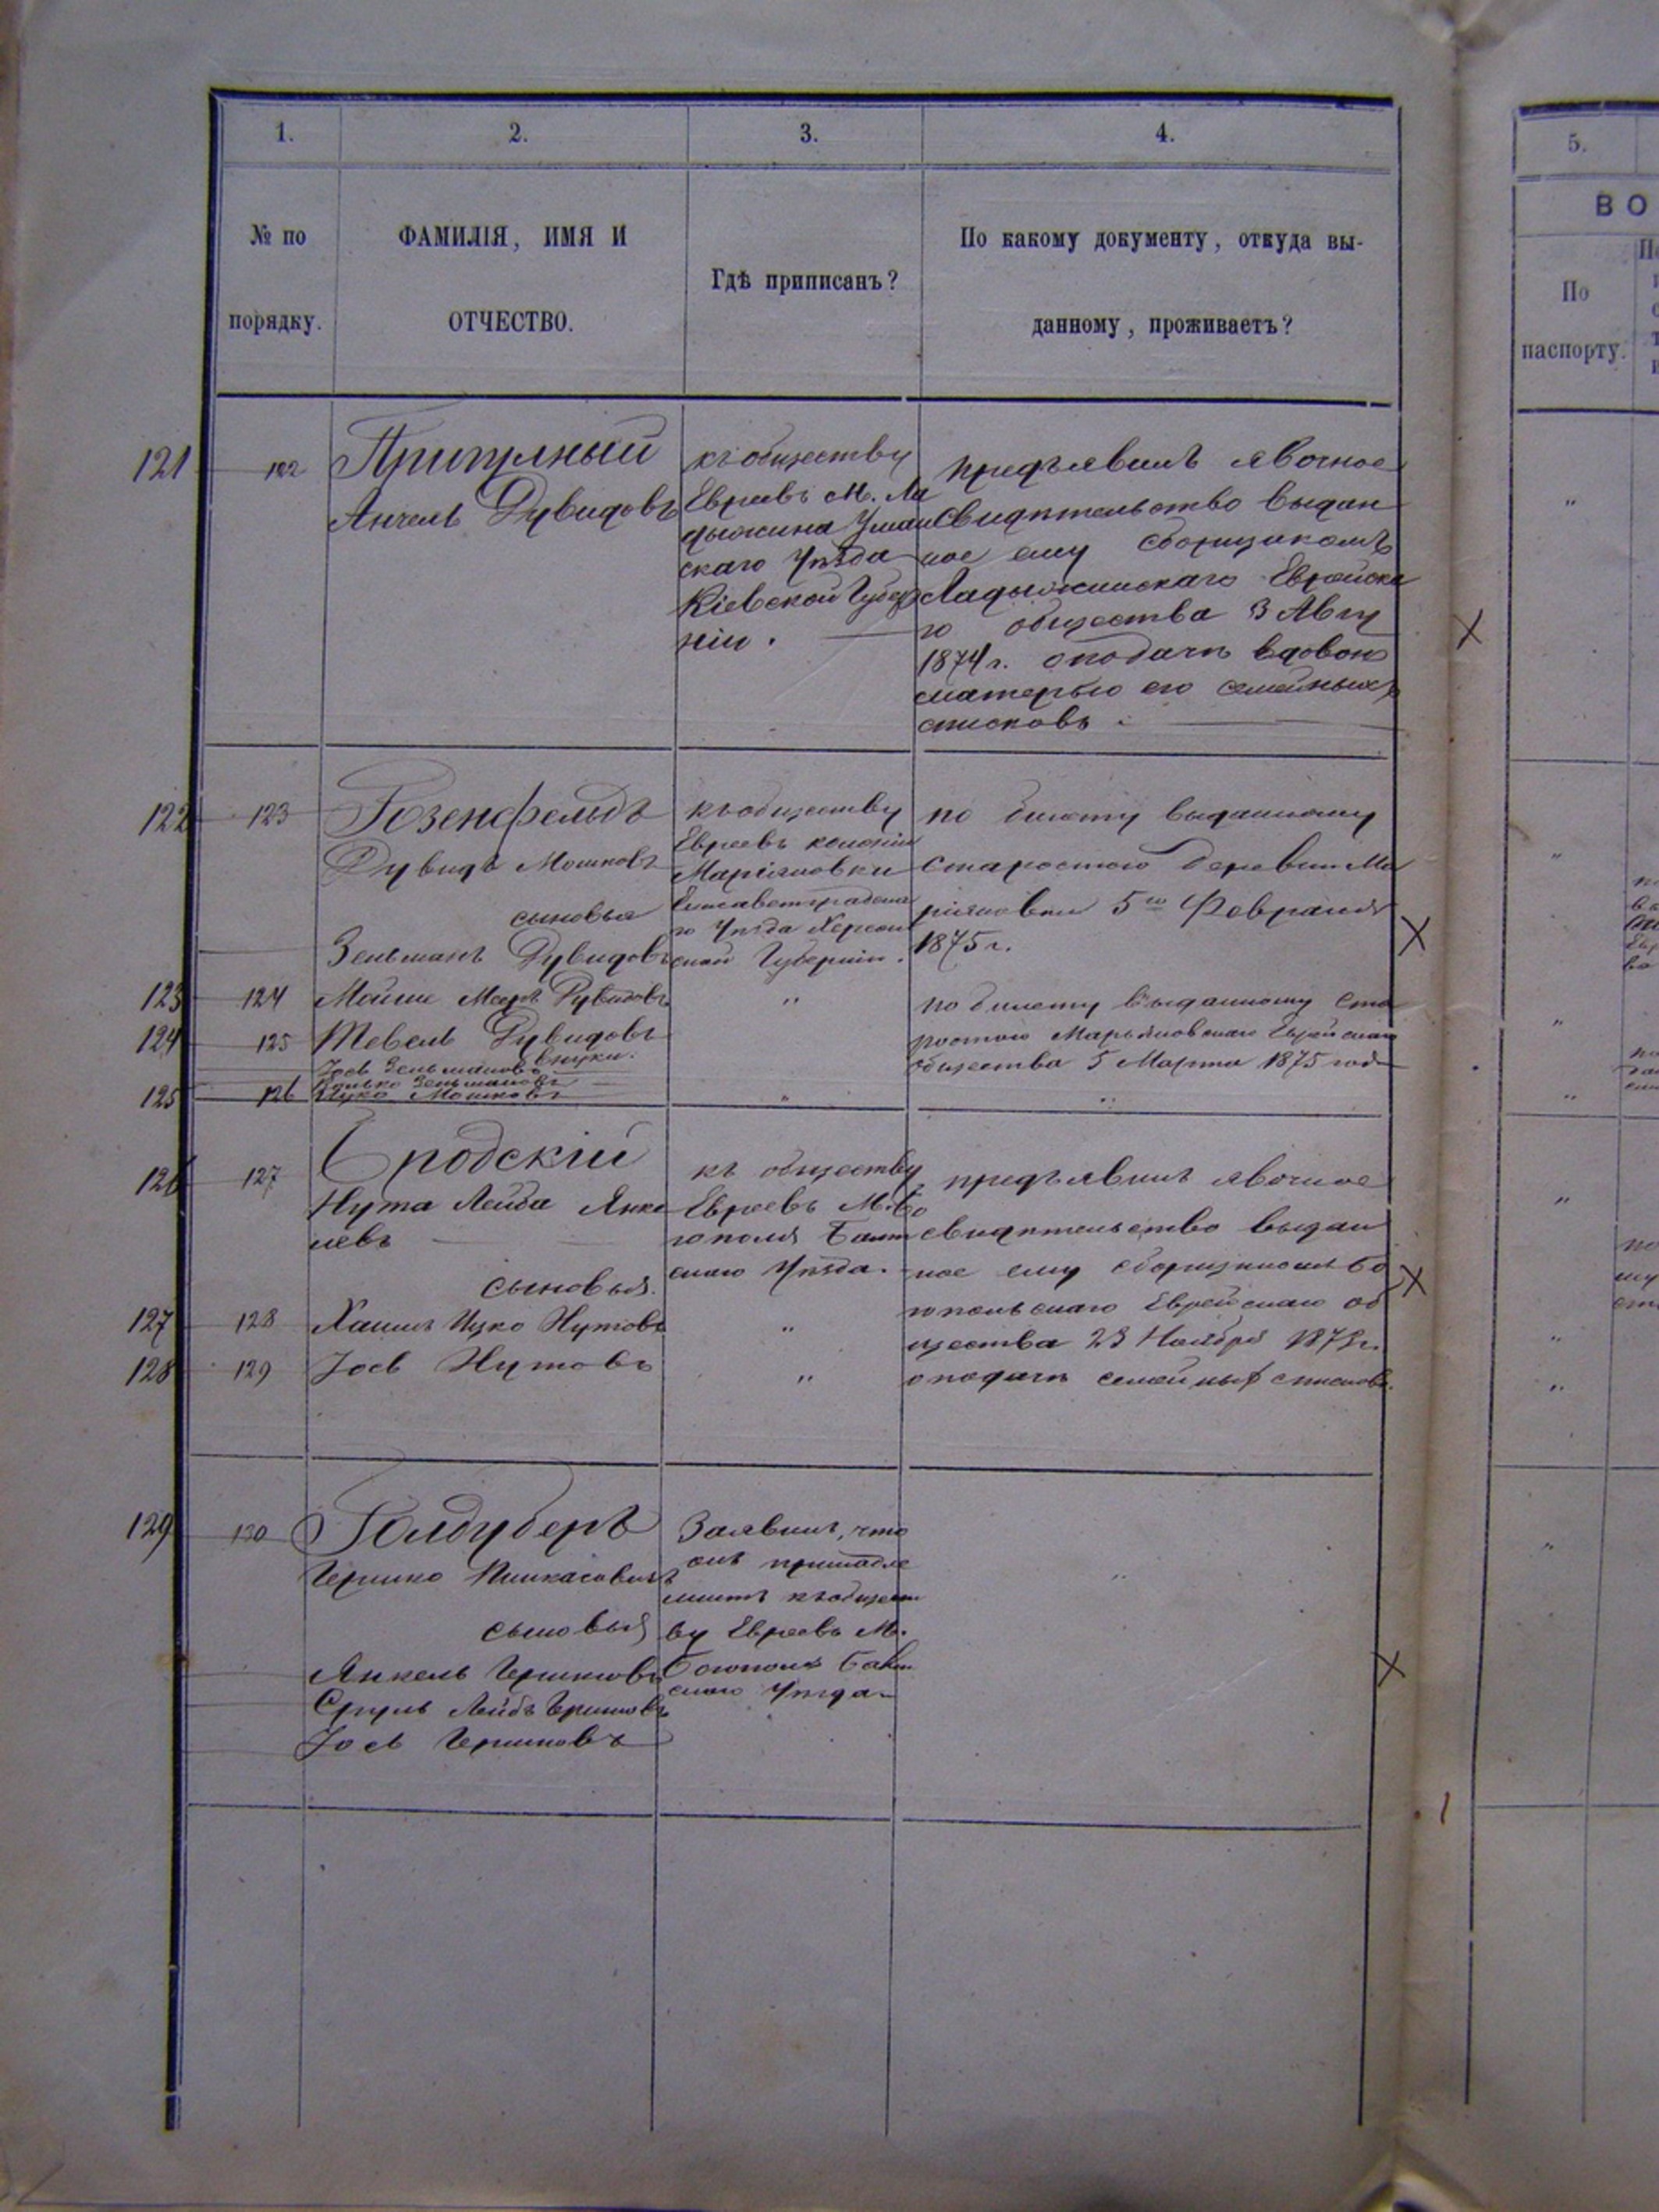 1. 2. 3. 4.
№ по порядку.
ФАМИЛІЯ, ИМЯ И
ОТЧЕСТВО.
Гдѣ приписанъ?
По какому документу, откуда вы-
данному, проживаетъ?
121 122
Анчель Дувидовъ
къ обществу
Евреевъ М. Ла
дыжина Уман
скаго Уѣзда
Кіевской Губер
ніи.
предъявилъ явочное
свидѣтельство выдан
ное ему сборщикомъ
Ладыжинскаго Еврейска
го общества 3 Авгу
1874 г. о подачѣ вдовою
матерью его семейныхъ
списковъ.
122 123
Розенфельдъ
Дувидъ Мошковъ
сыновья
Зельманъ Дувидовъ
къ обществу
Евреевъ колоніи
Маріяновки
Елисаветградска
го Уѣзда Херсон
ской Губерніи.
по билету выданному
старостою деревни Ма
ріяновки 5го Февраля
1875 г.
123 124 Мойше Мееръ Дувидовъ "
124 125 Тевель Дувидовъ
внуки.
Іось Зельмановъ
Зельмановъ
125 126 Ицко Мошковъ " "
по билету выданному ста
ростою Марьяновскаго Еврейскаго
общества 5 Марта 1875 года
126 127
Бродскій
Нута Лейба Янке
левъ
сыновья.
къ обществу
Евреевъ М. Бо
гополя Балт
скаго Уѣзда.
предъявилъ явочное
свидѣтельство выдан
ное ему сборщикомъ Бо
гопольскаго Еврейскаго об
щества 23 Ноября
о подачѣ семейныхъ списковъ.
127 128 Хаимъ Ицко Нутовъ "
128 129 Іось Нутовъ "
129 130
Гершко Пинкасовичъ
сыновья
Янкель Гершковъ
Сруль Лейбъ Гершковъ
Іось Гершковъ
Заявилъ, что
онъ принадле
житъ къ общест
ву Евреевъ М.
Богополя Балт
скаго Уѣзда
"
5.
ВО
По
паспорту.